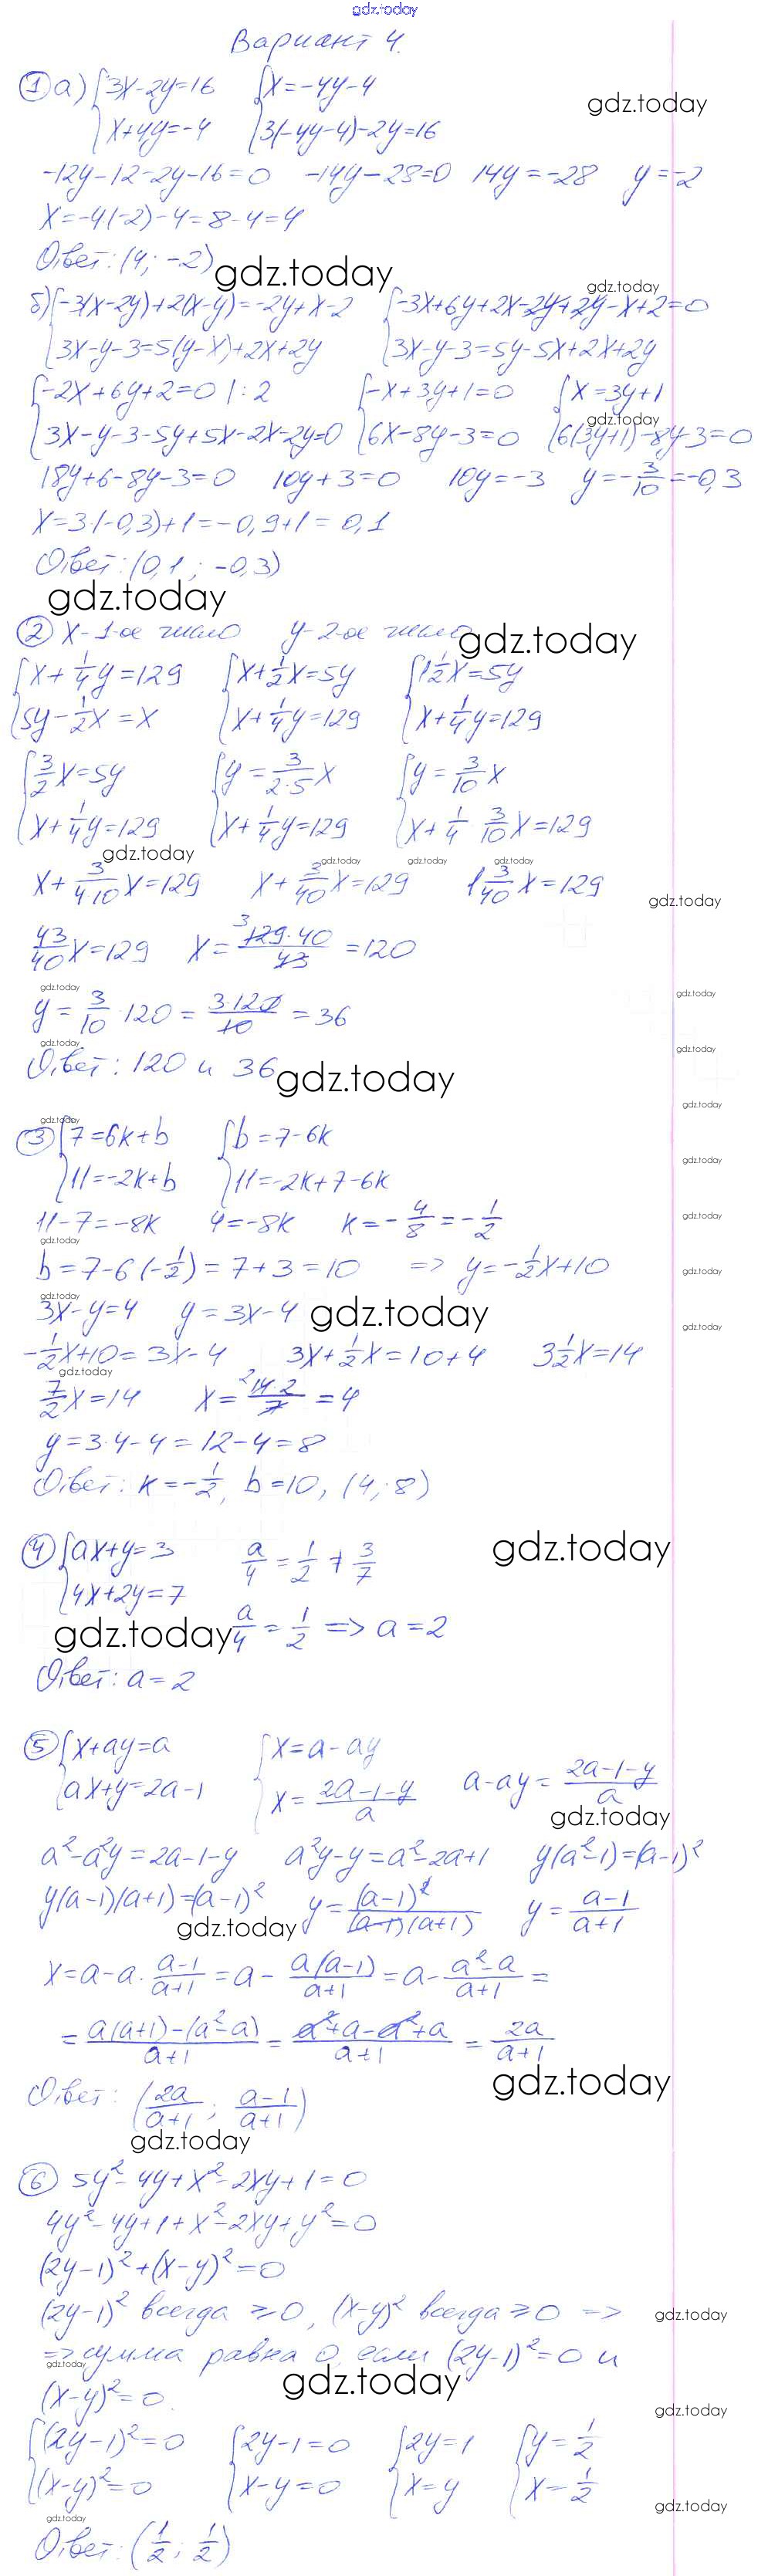 gdz.today
Вариант 4.
① а) {3x-2y=16 {x=-4y-4
gdz.today
{x+4y=-4 {3(-4y-4)-2y=16
-12y-12-2y-16=0 -14y-28=0 14y=-28 y=-2
x=-4(-2)-4=8-4=4
Ответ: (4; -2)
gdz.today
gdz.today
б) {-3(x-2y)+2(x-y)=-2y+x-2 {-3x+6y+2x-2y+2y-x+2=0
{3x-y-3=5(y-x)+2x+2y {3x-y-3=5y-5x+2x+2y
{-2x+6y+2=0 |:2 {-x+3y+1=0 {x=3y+1
gdz.today
{3x-y-3-5y+5x-2x-2y=0 {6x-8y-3=0 {6(3y+1)-8y-3=0
18y+6-8y-3=0 10y+3=0 10y=-3 y=-3/10=-0,3
x=3·(-0,3)+1=-0,9+1=0,1
Ответ: (0,1; -0,3)
gdz.today
② x-1-ое число y-2-ое число
gdz.today
{x+1/4y=129 {x+1/2x=5y {1 1/2x=5y
{5y-1/2x=x {x+1/4y=129 {x+1/4y=129
{3/2x=5y {y=3/(2·5)x {y=3/10x
{x+1/4y=129 {x+1/4y=129 {x+1/4 3/10x=129
gdz.today
gdz.today gdz.today gdz.today
x+3/(4·10)x=129 x+3/40x=129 1 3/40x=129
gdz.today
43/40x=129 x=129·40/43=120
gdz.today
gdz.today
y=3/10·120=3·120/10=36
gdz.today
gdz.today
Ответ: 120 и 36
gdz.today
gdz.today
gdz.today
③ {7=6k+b {b=7-6k
gdz.today
{11=-2k+b {11=-2k+7-6k
11-7=-8k 4=-8k k=-4/8=-1/2
gdz.today
gdz.today
b=7-6(-1/2)=7+3=10 => y=-1/2x+10
gdz.today
gdz.today
3x-y=4 y=3x-4
gdz.today
gdz.today
-1/2x+10=3x-4 3x+1/2x=10+4 3 1/2x=14
gdz.today
7/2x=14 x=14·2/7=4
y=3·4-4=12-4=8
Ответ: k=-1/2, b=10, (4; 8)
④ {ax+y=3 a/4=1/2≠3/7
gdz.today
{4x+2y=7
gdz.today
a/4=1/2 => a=2
Ответ: a=2
⑤ {x+ay=a {x=a-ay
{ax+y=2a-1 {x=(2a-1-y)/a a-ay=(2a-1-y)/a
gdz.today
a²-a²y=2a-1-y a²y-y=a²-2a+1 y(a²-1)=(a-1)²
y(a-1)(a+1)=(a-1)² y=(a-1)²/((a-1)(a+1)) y=(a-1)/(a+1)
gdz.today
x=a-a·(a-1)/(a+1)=a-a(a-1)/(a+1)=a-(a²-a)/(a+1)=
=(a(a+1)-(a²-a))/(a+1)=(a²+a-a²+a)/(a+1)=2a/(a+1)
gdz.today
Ответ: (2a/(a+1); (a-1)/(a+1))
gdz.today
⑥ 5y²-4y+x²-2xy+1=0
4y²-4y+1+x²-2xy+y²=0
(2y-1)²+(x-y)²=0
(2y-1)² всегда ≥0, (x-y)² всегда ≥0 =>
gdz.today
=> сумма равна 0, если (2y-1)²=0 и
gdz.today
gdz.today
(x-y)²=0.
gdz.today
{(2y-1)²=0 {2y-1=0 {2y=1 {y=1/2
{(x-y)²=0 {x-y=0 {x=y {x=1/2
gdz.today
gdz.today
Ответ: (1/2; 1/2)